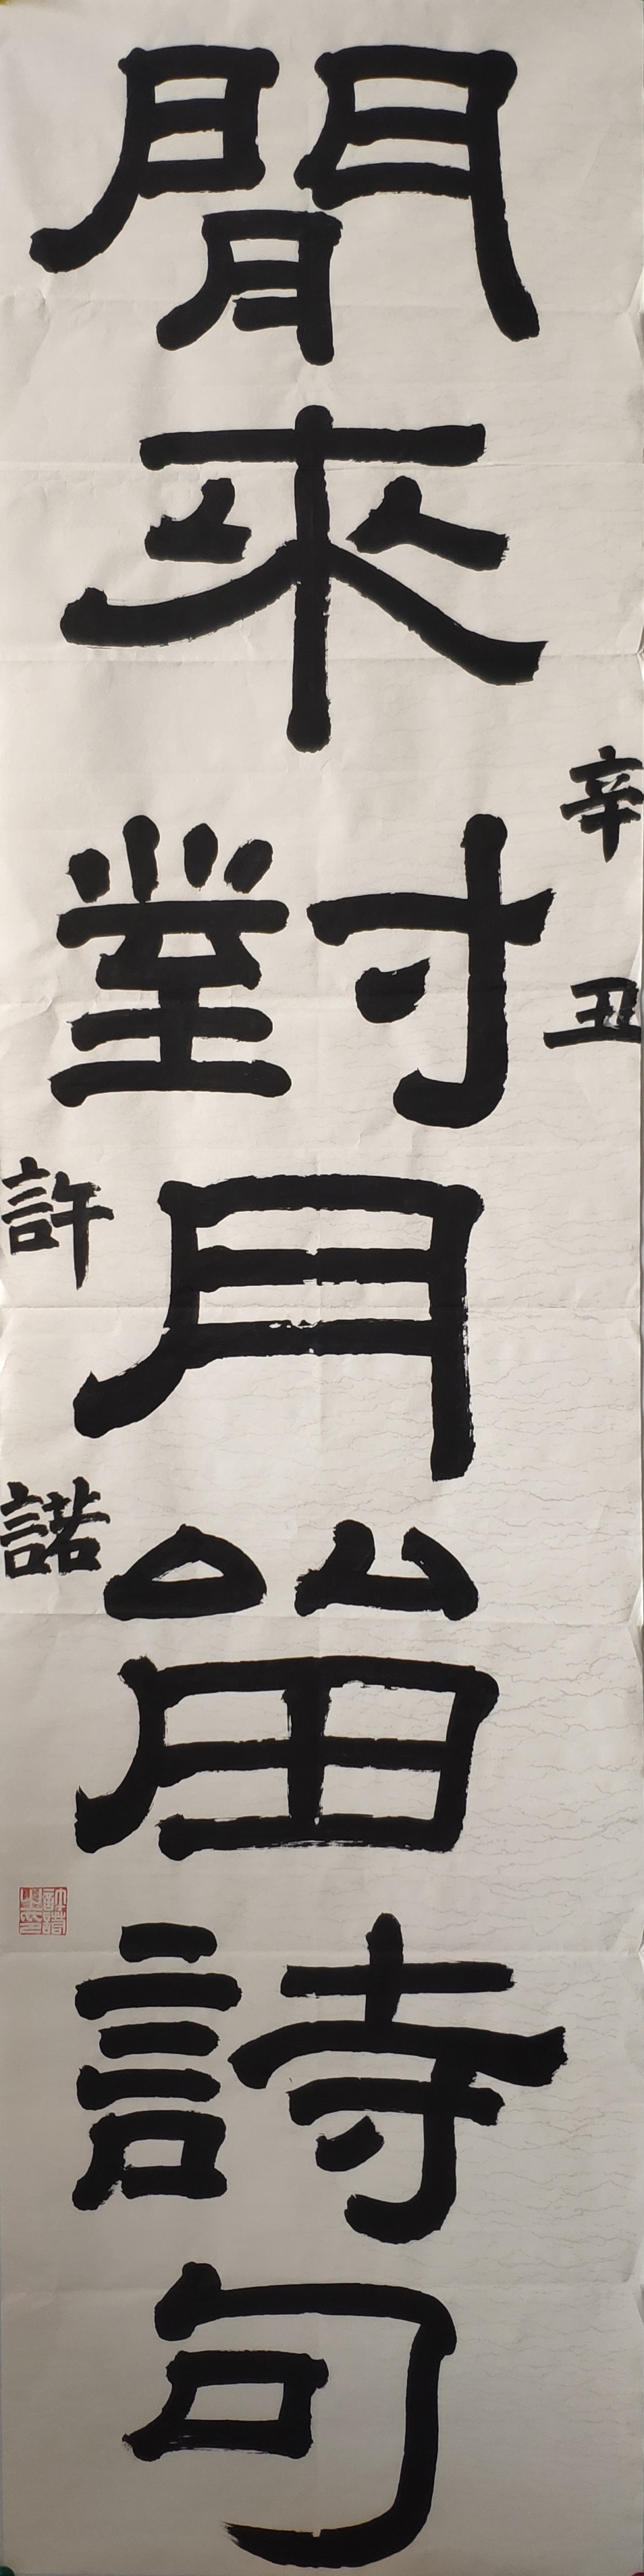 辛丑
閒來對月留詩句
許諾